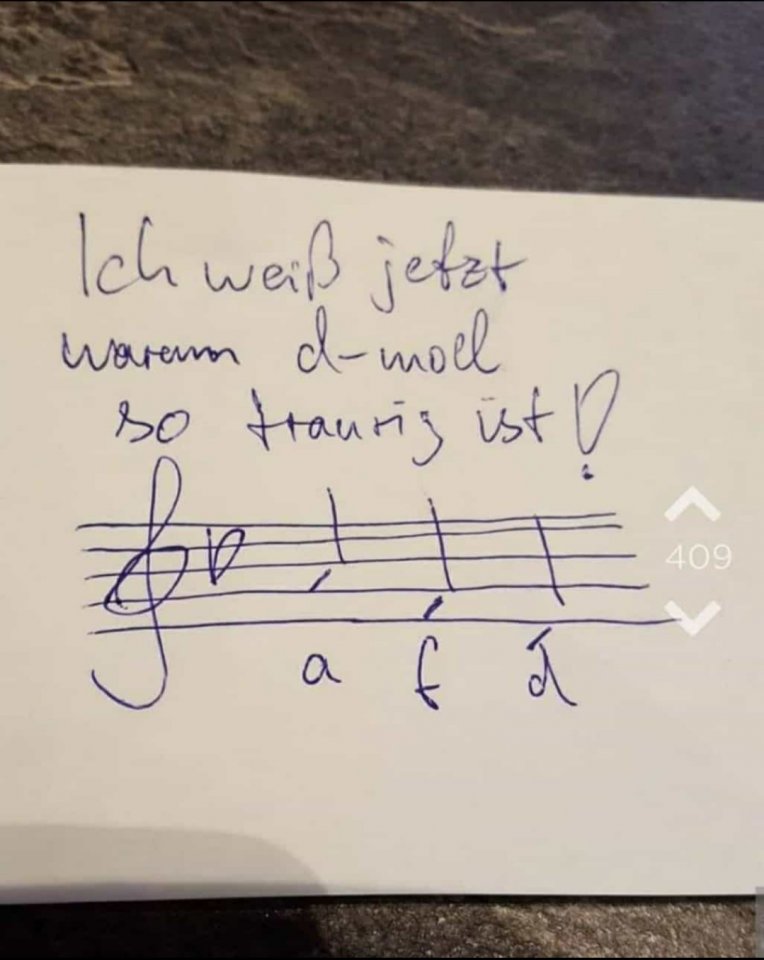 Ich weiß jetzt
warum d-moll
so traurig ist!
409
a f d